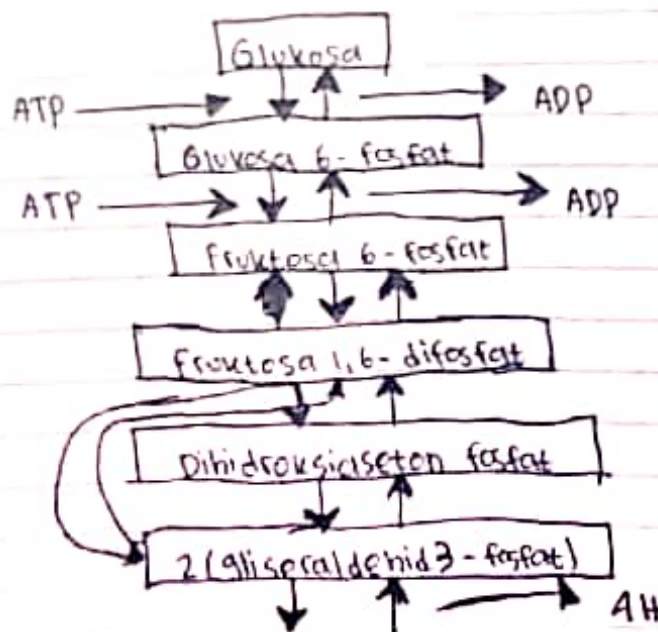 Glukosa
ATP ADP
Glukosa 6-fosfat
ATP ADP
Fruktosa 6-fosfat
Fruktosa 1,6-difosfat
Dihidroksiaseton fosfat
2(gliseraldehid 3-fosfat)
4H